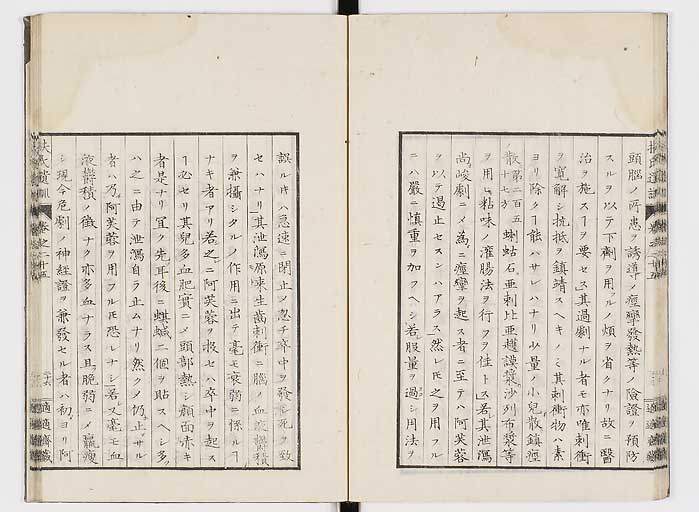 頭腦ノ所患ヲ誘導ノ痙攣發熱等ノ險證ヲ預防
スルヲ以テ下劑ヲ用フルノ煩ヲ省クナリ故ニ醫
治ヲ施スヿヲ要セス其過劇ナル者モ亦唯刺衝
ヲ寬解シ抗抵ヲ鎮靖スヘキノミ其刺衝物ハ素
ヨリ除クヿ能ハサレハナリ少量ノ小兒散鎮痙
散第二百五十七方蝲蛄石亜剌比亜護謨漿沙列布漿等
ヲ用ヒ粘味ノ灌腸法ヲ行フヲ佳トス若其泄瀉
尚峻劇ニメ為ニ瘈瘲ヲ起ス者ニ至テハ阿芙蓉
ヲ以テ遏止セスンハアラス然レ𪜈之ヲ用フル
ニハ嚴ニ慎重ヲ加フヘシ若服量ヲ過シ用法ヲ
誤ル𪜈ハ急速ニ閉止シ忽チ卒中ヲ發シ死ヲ致
セハナリ其泄瀉原來生齒刺衝ニ腦ノ血液鬱積
ヲ兼攝シタルノ作用ニ出テ毫モ衰弱ニ係ルヿ
ナキ者アリ若之ニ阿芙蓉ヲ投セハ卒中ヲ起ス
ヿ必セリ其兒多血肥實ニメ頭部熱シ顔面赤キ
者是ナリ宜ク先耳後ニ蜞鍼二個ヲ貼スヘシ多
ハ之ニ由テ泄瀉自ラ止ムナリ然クメ仍止サル
者ハ乃阿芙蓉ヲ用フル𪜈恐ルヽナシ若又毫モ血
液鬱積ノ徴ナク亦多血ナラス且脆弱ニメ羸瘦
シ現今危劇ノ神経證ヲ兼發セル者ハ初ヨリ阿
扶氏遺訓
卷之二十五
二十六
適適齋藏